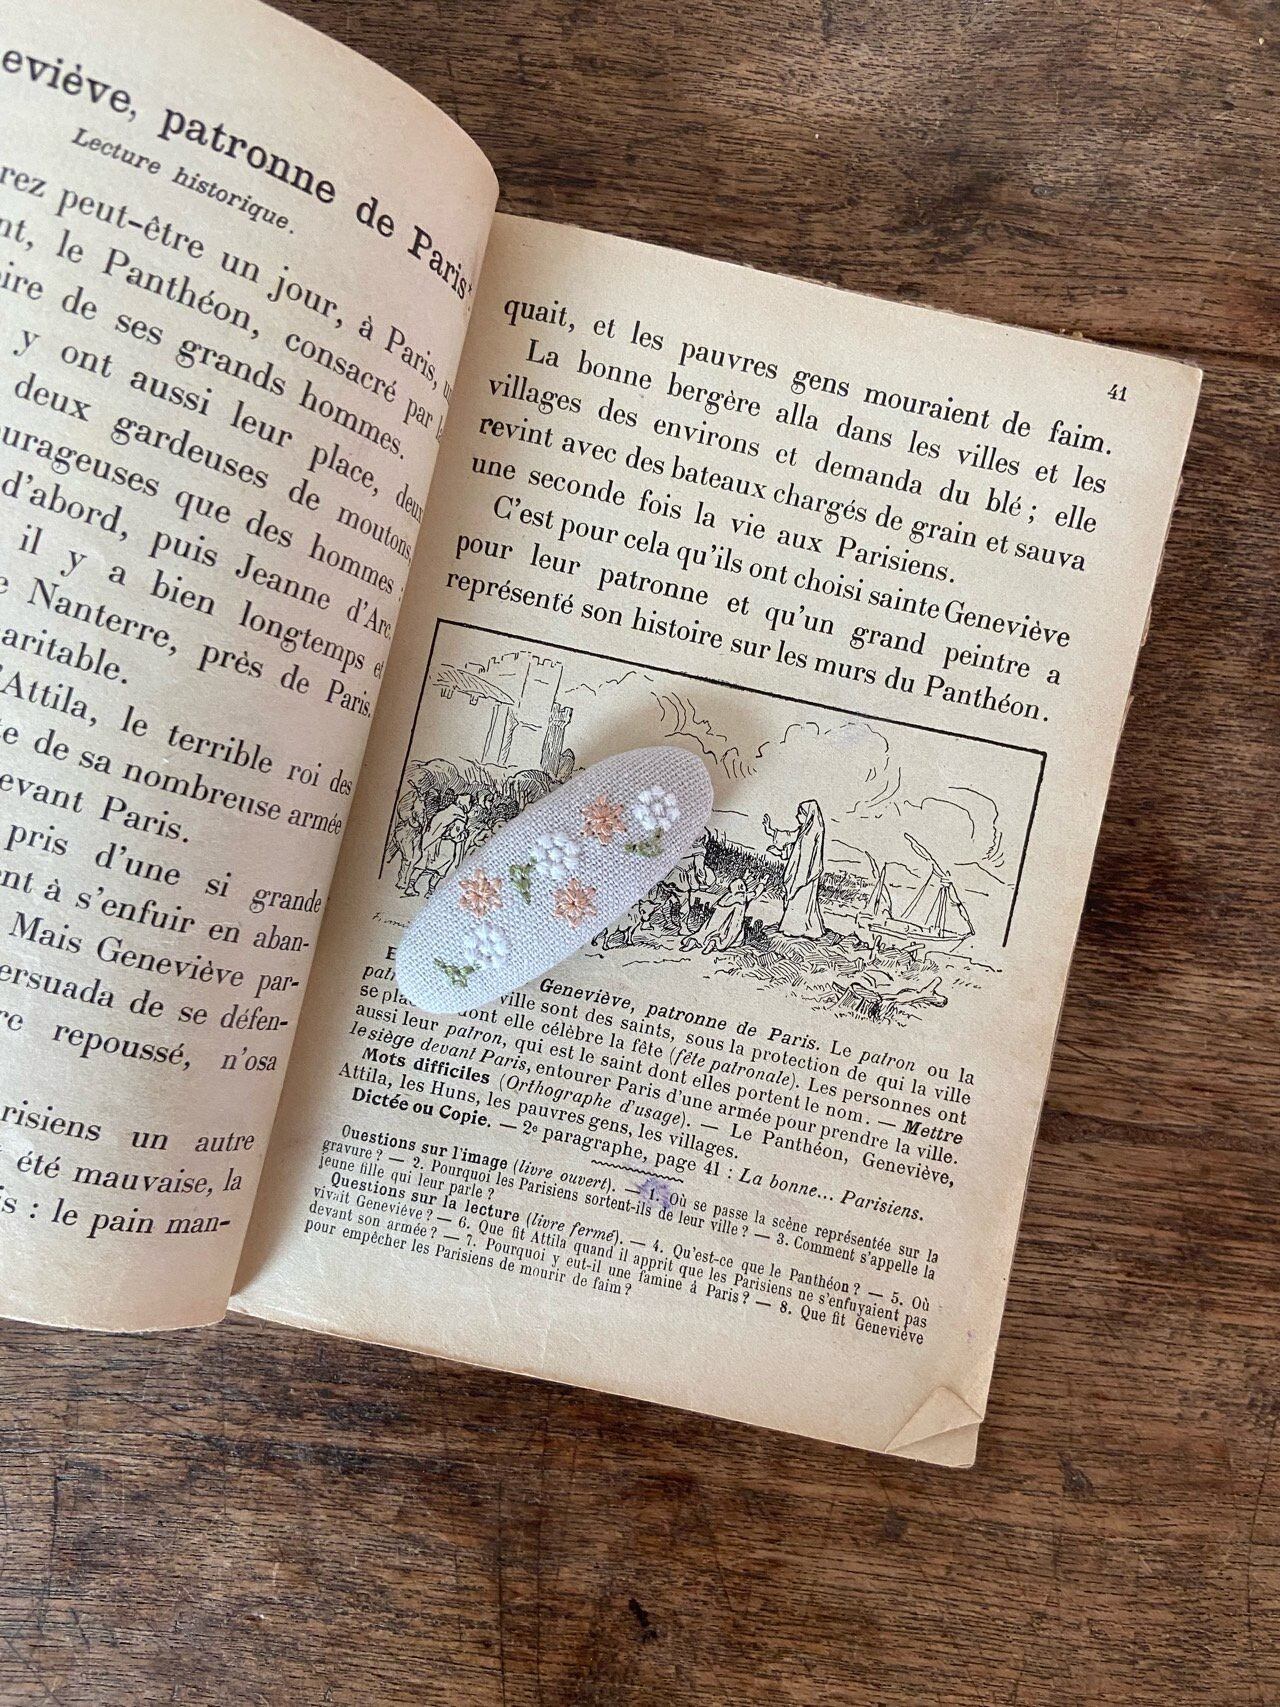 eviève, patronne de Paris
Lecture historique.
rez peut-être un jour, à Paris,
nt, le Panthéon, consacré par
ire de ses grands hommes.
y ont aussi leur place, deux
deux gardeuses de moutons,
urageuses que des hommes :
d'abord, puis Jeanne d'Arc.
il y a bien longtemps et
Nanterre, près de Paris,
aritable.
'Attila, le terrible roi des
te de sa nombreuse armée
evant Paris.
pris d'une si grande
ent à s'enfuir en aban-
Mais Geneviève par-
ersuada de se défen-
re repoussé, n'osa
risiens un autre
été mauvaise, la
is : le pain man-
41
quait, et les pauvres gens mouraient de faim.
La bonne bergère alla dans les villes et les
villages des environs et demanda du blé ; elle
revint avec des bateaux chargés de grain et sauva
une seconde fois la vie aux Parisiens.
C'est pour cela qu'ils ont choisi sainte Geneviève
pour leur patronne et qu'un grand peintre a
représenté son histoire sur les murs du Panthéon.
Geneviève, patronne de Paris. Le patron ou la
ville sont des saints, sous la protection de qui la ville
se pla dont elle célèbre la fête (fête patronale). Les personnes ont
aussi leur patron, qui est le saint dont elles portent le nom. — Mettre
le siège devant Paris, entourer Paris d'une armée pour prendre la ville.
Mots difficiles (Orthographe d'usage). — Le Panthéon, Geneviève,
Attila, les Huns, les pauvres gens, les villages.
Dictée ou Copie. — 2e paragraphe, page 41 : La bonne... Parisiens.
Questions sur l'image (livre ouvert). — 1. Où se passe la scène représentée sur la
gravure ? — 2. Pourquoi les Parisiens sortent-ils de leur ville ? — 3. Comment s'appelle la
jeune fille qui leur parle ?
Questions sur la lecture (livre fermé). — 4. Qu'est-ce que le Panthéon ? — 5. Où
vivait Geneviève ? — 6. Que fit Attila quand il apprit que les Parisiens ne s'enfuyaient pas
devant son armée ? — 7. Pourquoi y eut-il une famine à Paris ? — 8. Que fit Geneviève
pour empêcher les Parisiens de mourir de faim ?